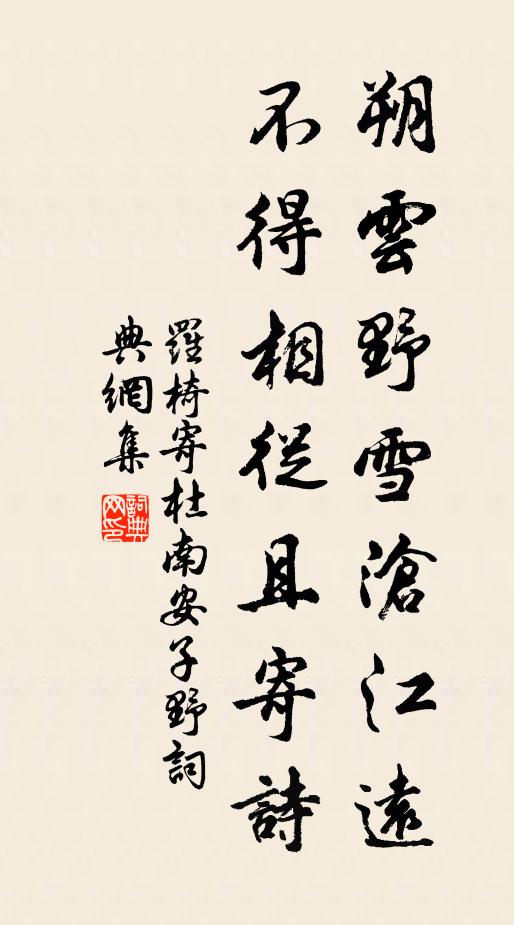 朔雲野雪滄江遠
不得相從且寄詩
羅椅寄杜南安子野詞
典網集
詞典
网印